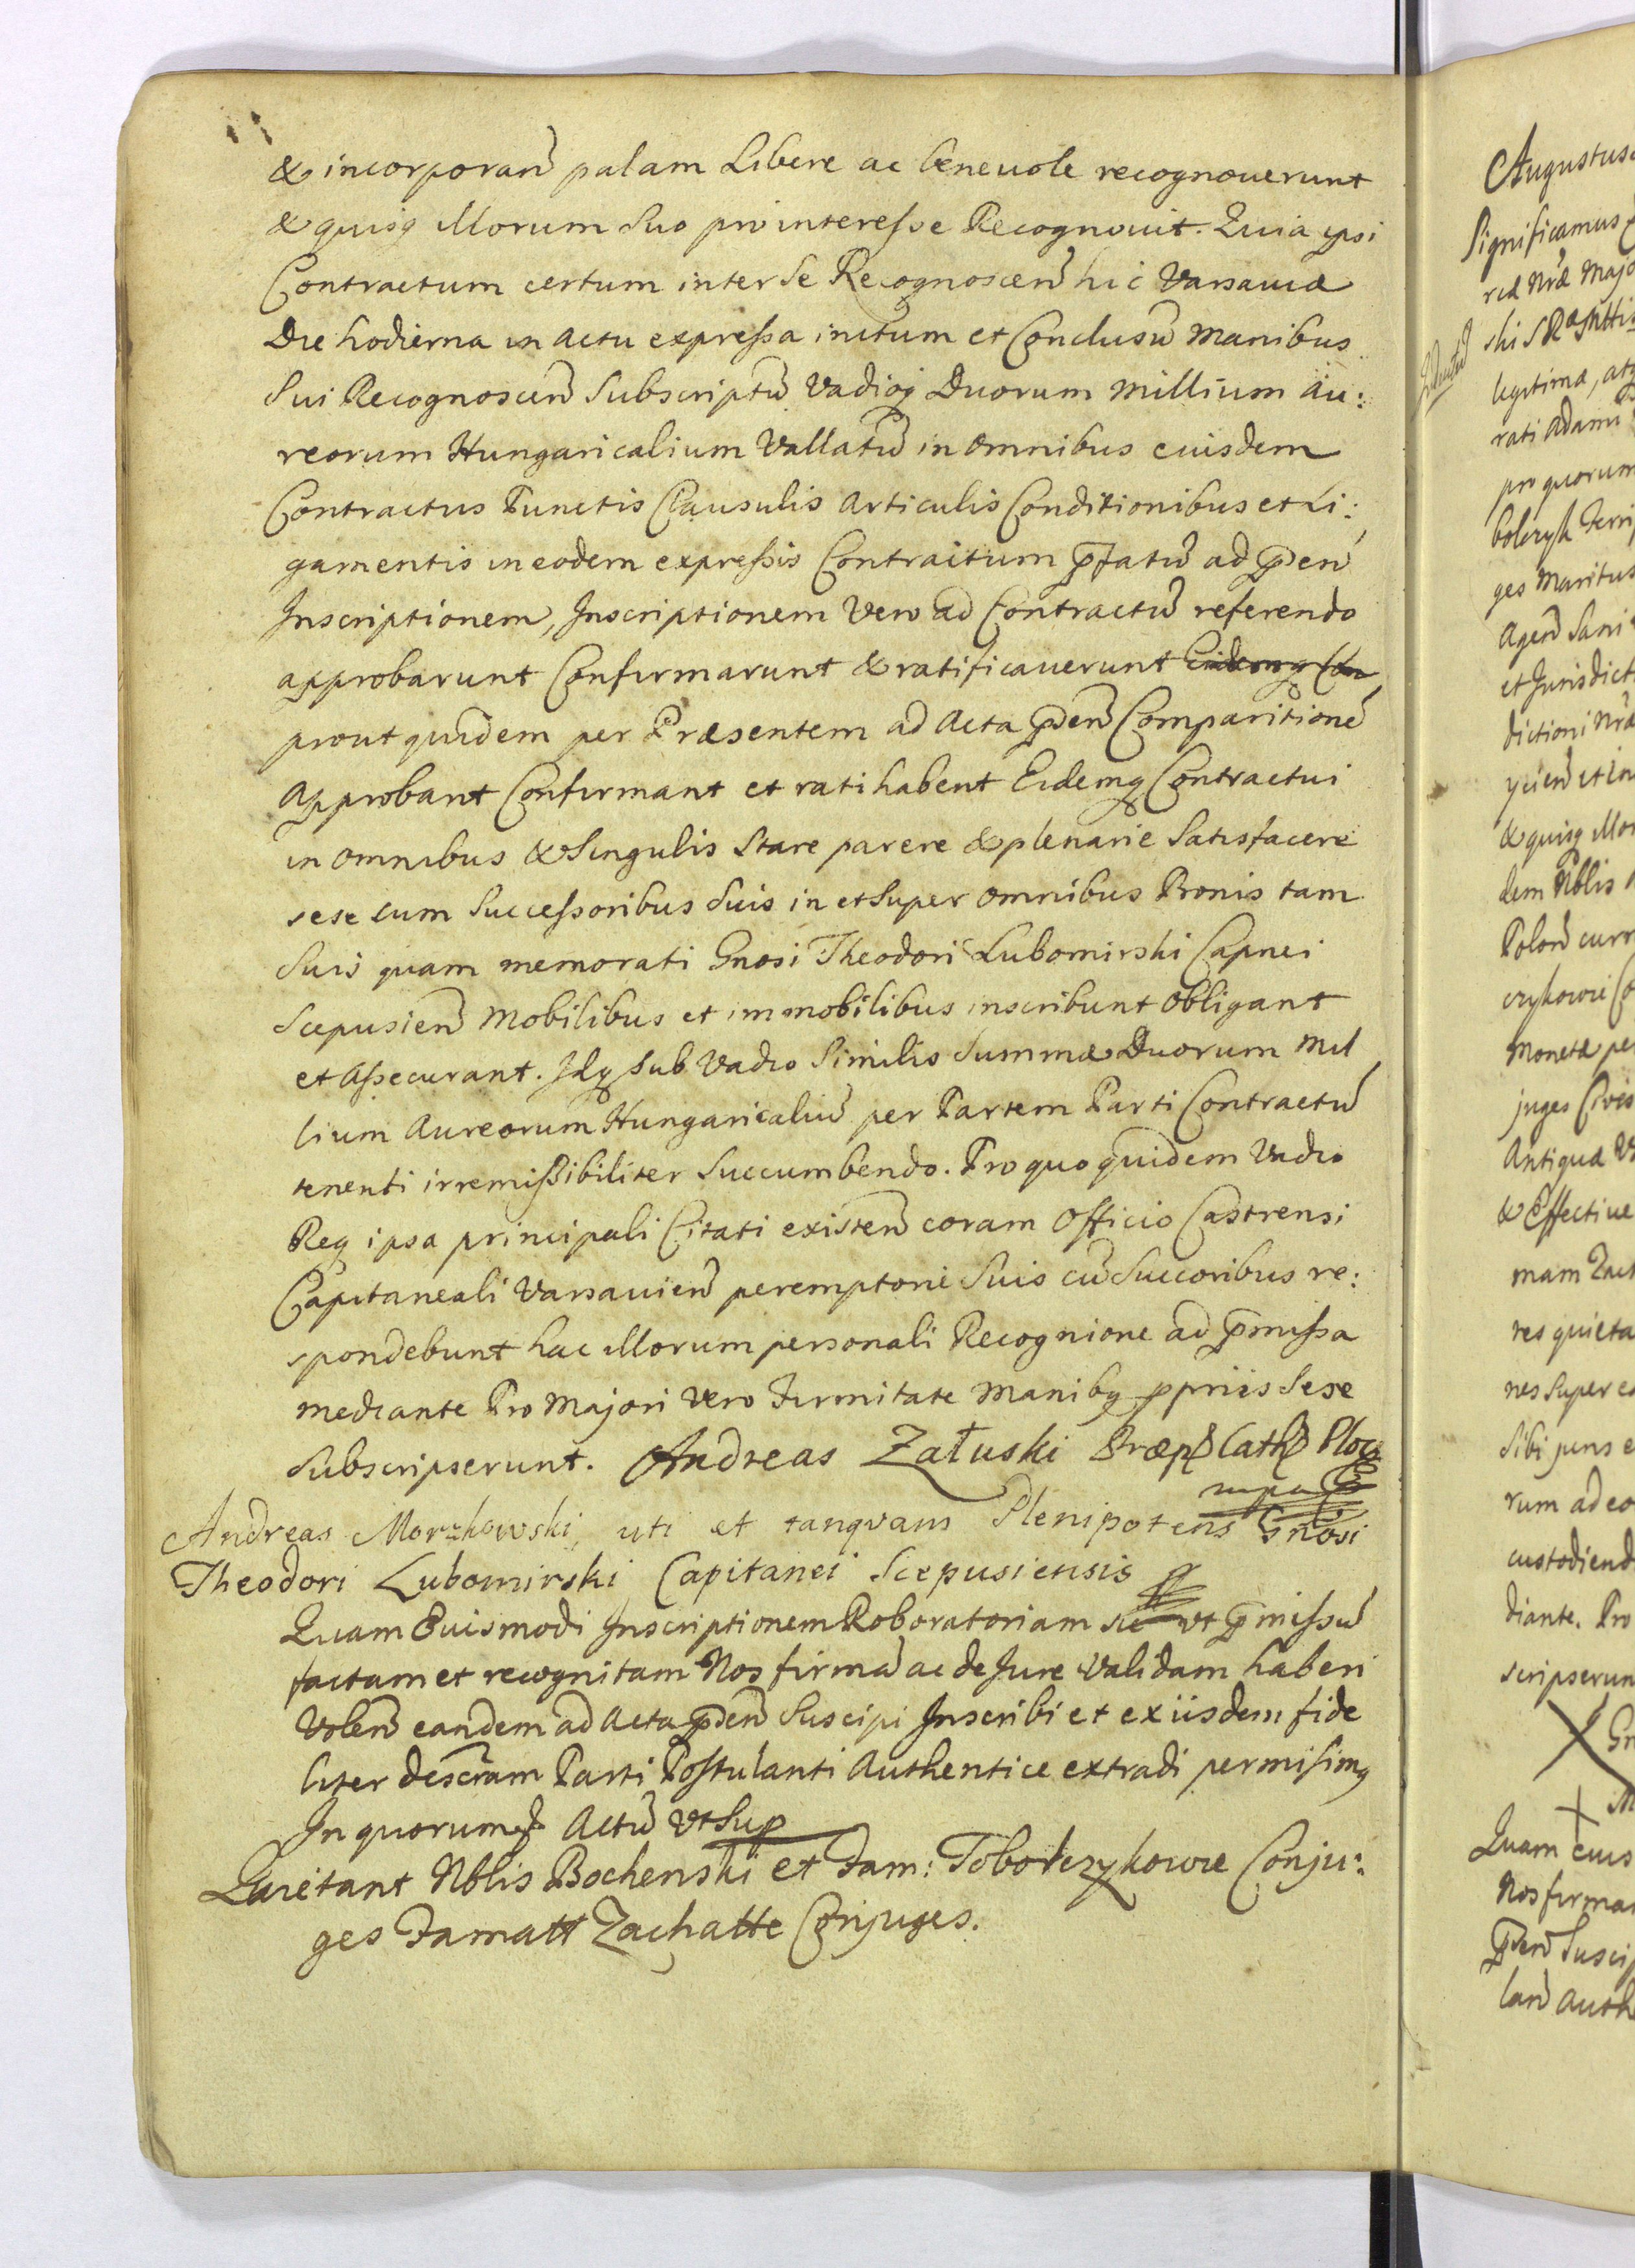 & incorporañ palam Libere ac beneuole recognouerunt
& quisq Illorum Suo pro interesse Recognouit. Quia ipsi
Contractum certum inter Se Recognosceñ hic Varsauiæ
Die hodierna in Actu expressa initum et Conclusũ Manibus
Sui Recognosceñ Subscriptũ Vadioq Duorum Millium Au:
reorum Hungaricalium Vallatũ in omnibus euisdem
Contractus Punctis Clausulis Articulis Conditionibus et Li:
gamentis in eodem expressis Contractum p̃fatũ ad p̃deñ
Inscriptionem, Inscriptionem Vero ad Contractũ referendo
approbarunt Confirmarunt & ratificauerunt Eidemq Con
prout quidem per Præsentem ad Acta p̃deñ Comparitionẽ
Approbant Confirmant et ratihabent Eidemq Contractui
in omnibus & Singulis Stare parere & plenarie Satisfacere
sese cum Successoribus Suis in et Super omnibus Bonis tam
Suis quam memorati Gnosi Theodori Lubomirski Capnei
Scepusieñ Mobilibus et immobilibus inscribunt Obligant
et Assecurant. Idq Sub Vadio Similis Summæ Duorum Mil
lium Aureorum Hungaricaliũ per Partem Parti Contractũ
tenenti irremissibiliter Succumbendo. Pro quo quidem Vadio
Req ipsa principali Citati existeñ coram Officio Castrensi
Capitaneali Varsauieñ peremptorie Suis cũ Succoribus re:
spondebunt hac Illorum personali Recognione ad p̃missa
mediante Pro Majori Vero Firmitate Manibq ppriis Sese
Subscripserunt. Andreas Załuski Præp Cath Ploc
mpa
Andreas Morzkowski, uti et tanqvam Plenipotens Gnosi
Theodori Lubomirski Capitanei Scepusiensis
Quam Euismodi Inscriptionem Roboratoriam sic vt p̃missũ
factam et recognitam Nos firmã ac de Jure Validam haberi
Voleñ eandem ad Acta p̃deñ Suscipi Inscribi et ex iisdem fide
liter descram Parti Postulanti Authentice extradi permisimq
In quorum Actũ Vt Sup
Quietant Nblis Bochenski et Fam: Tobołczykowie Conju:
ges Famatt Zachatte Conjuges.
Augustus
Significamus
riæ Nræ Majo
ski SRA
legitima, atq
rati Adami
pro quorum
ges Maritus
Ageñ Sani
et Jurisdict
dictioni Nræ
& quisq Illor
dem Nblis
Poloñ curr
Moneta pe
juges Cives
Antiqua
& Effectiue
mam
res quieta
nes Super e
Sibi juns e
rum ad eo
custodiend
diante. Pro
scripserun
Gn
Quam eius
Nos firma
p̃deñ Suscip
lañ Auth